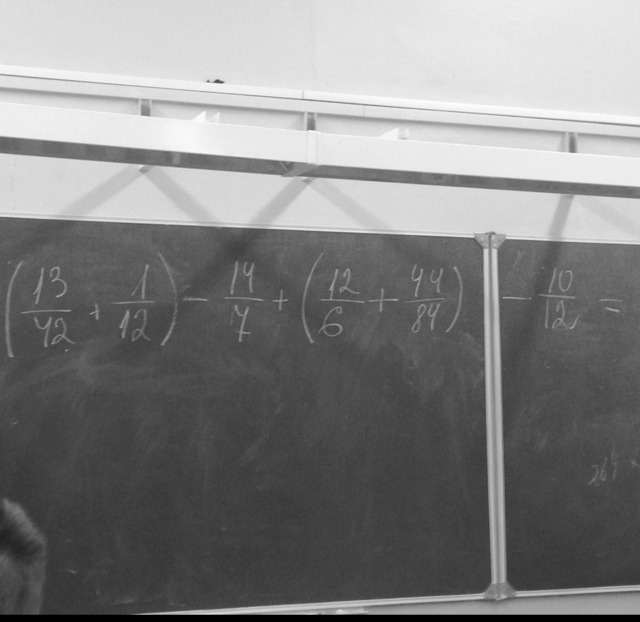 (13/42 + 1/12) - 14/7 + (12/6 + 44/84) - 10/12 =